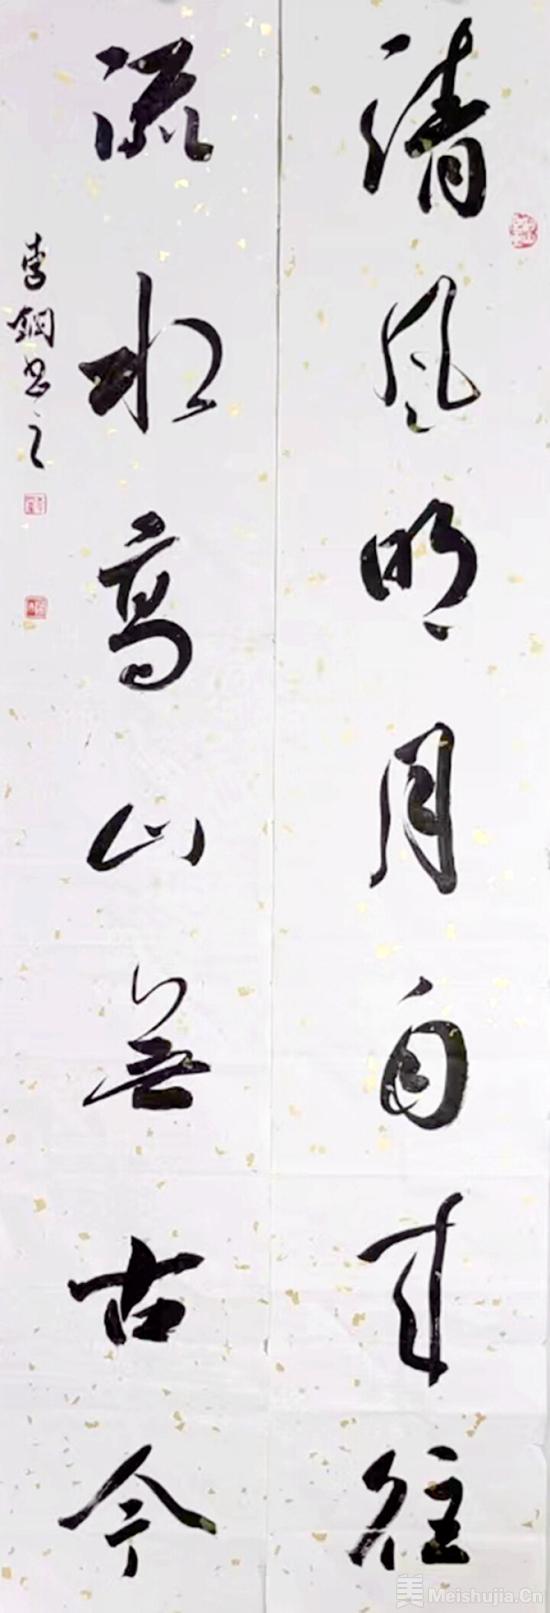 清風明月自来往
流水高山無古今
李鋼书之
美 Meishujia.Cn